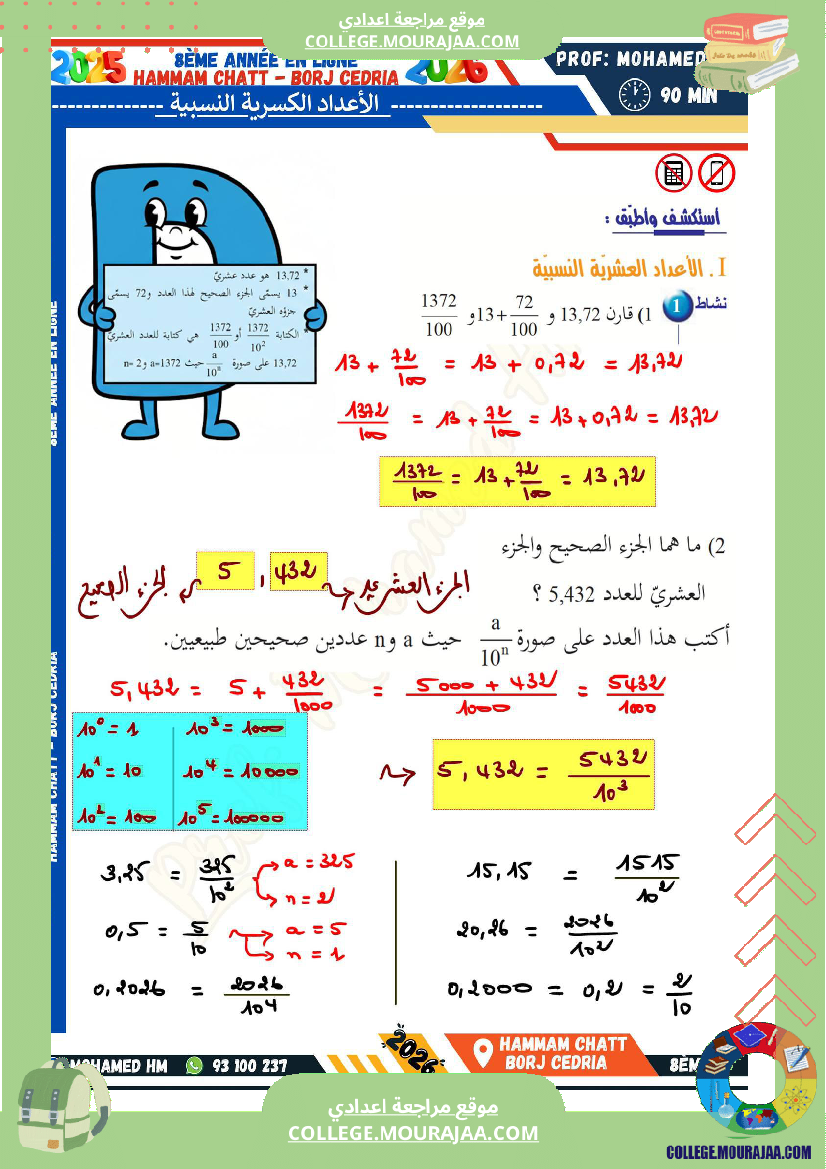 موقع مراجعة اعدادي
COLLEGE.MOURAJAA.COM
2025 8ÈME ANNÉE EN LIGNE 2026
HAMMAM CHATT - BORJ CEDRIA
PROF: MOHAMED
90 MIN
الأعداد الكسرية النسبية
أستكشف وأطبّق :
I. الأعداد العشريّة النسبيّة
* 13,72 هو عدد عشريّ
* 13 يسمّى الجزء الصحيح لهذا العدد و72 يسمّى
جزؤه العشريّ
* الكتابة 1372/10² أو 1372/100 هي كتابة للعدد العشريّ
13,72 على صورة a/10ⁿ حيث a=1372 و n=2
نشاط 1 1) قارن 13,72 و 72/100+13 و 1372/100
13 + 72/100 = 13 + 0,72 = 13,72
1372/100 = 13 + 72/100 = 13 + 0,72 = 13,72
1372/100 = 13 + 72/100 = 13,72
2) ما هما الجزء الصحيح والجزء
العشريّ للعدد 5,432 ؟
الجزء العشري 5 , 432 الجزء الصحيح
أكتب هذا العدد على صورة a/10ⁿ حيث a و n عددين صحيحين طبيعيين.
5,432 = 5 + 432/1000 = 5000 + 432/1000 = 5432/1000
10⁰ = 1 10³ = 1000
10¹ = 10 10⁴ = 10000
10² = 100 10⁵ = 100000
5,432 = 5432/10³
3,25 = 325/10² a = 325
n = 2
0,5 = 5/10 a = 5
n = 1
0,2026 = 2026/10⁴
15,15 = 1515/10²
20,26 = 2026/10²
0,2000 = 0,2 = 2/10
8ÈME ANNÉE EN LIGNE
HAMMAM CHATT - BORJ CEDRIA
MOHAMED HM 93 100 237
2026
HAMMAM CHATT
BORJ CEDRIA
8ÈM
موقع مراجعة اعدادي
COLLEGE.MOURAJAA.COM
COLLEGE.MOURAJAA.COM